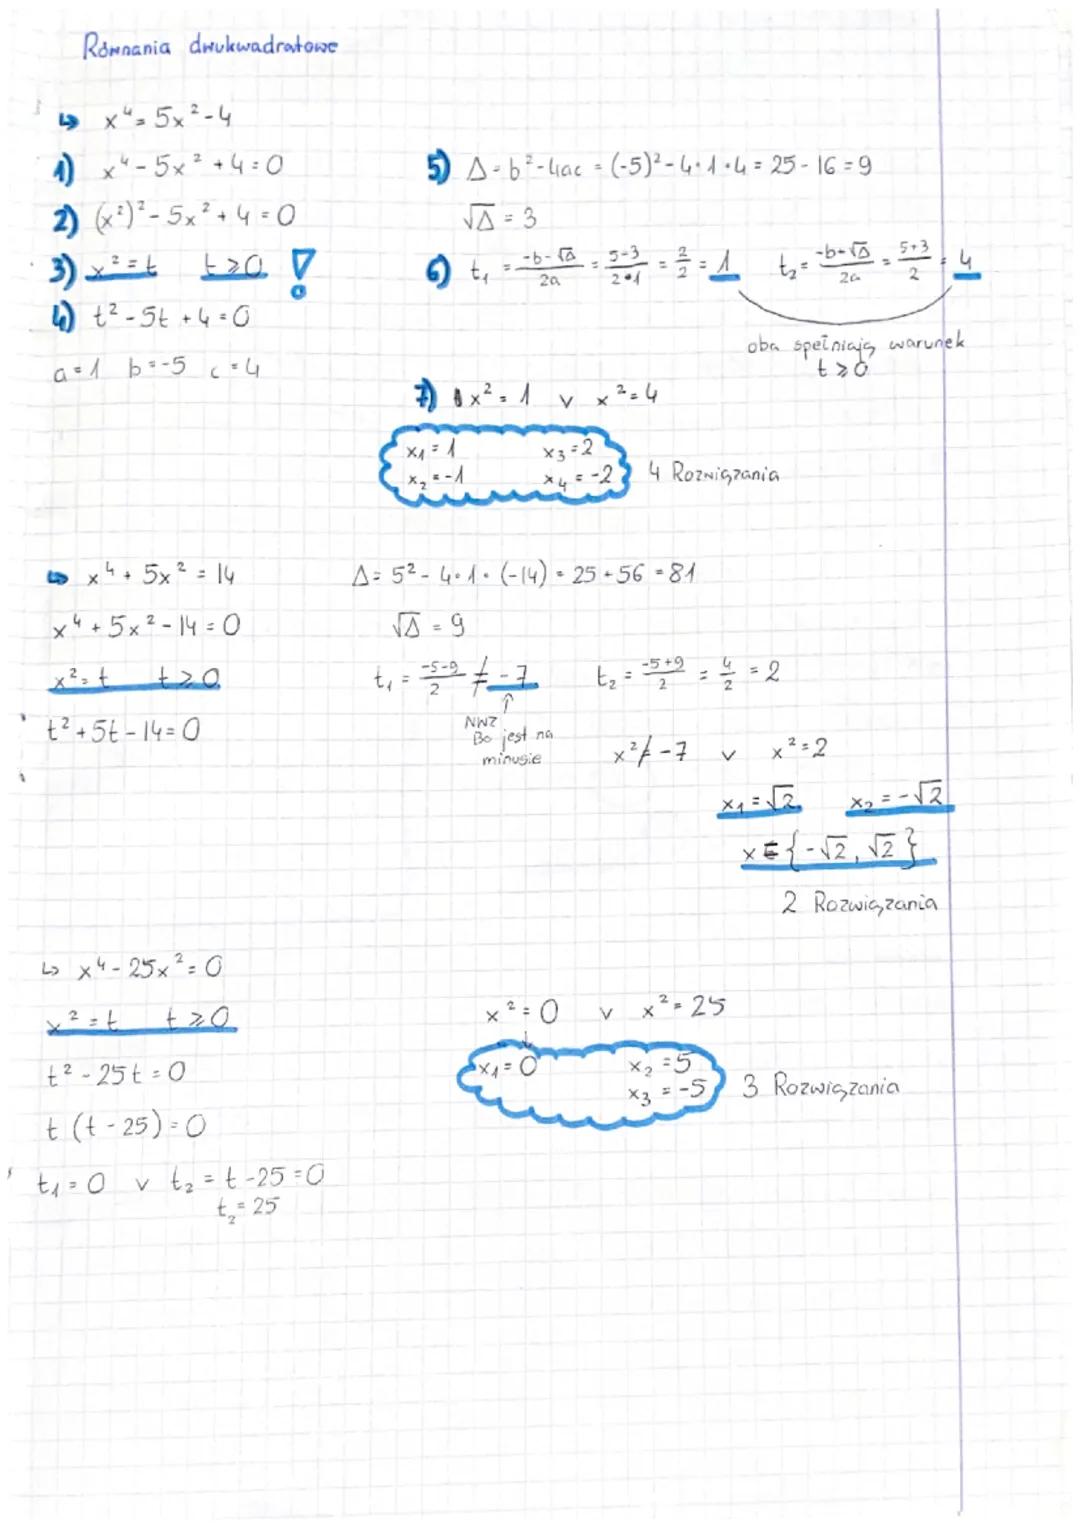 Równania dwukwadratowe
↳ x⁴ = 5x² - 4
1) x⁴ - 5x² + 4 = 0
2) (x²)² - 5x² + 4 = 0
3) x² = t t ⩾ 0 !
4) t² - 5t + 4 = 0
a = 1 b = -5 c = 4
5) Δ = b² - 4ac = (-5)² - 4·1·4 = 25 - 16 = 9
√Δ = 3
6) t₁ = (-b-√Δ)/2a = (5-3)/(2·1) = 2/2 = 1 t₂ = (-b+√Δ)/2a = (5+3)/2 = 4
oba spełniają warunek
t ⩾ 0
7) x² = 1 v x² = 4
x₁ = 1 x₃ = 2
x₂ = -1 x₄ = -2 4 Rozwiązania
↳ x⁴ + 5x² = 14
x⁴ + 5x² - 14 = 0
x² = t t ⩾ 0
t² + 5t - 14 = 0
Δ = 5² - 4·1·(-14) = 25 + 56 = 81
√Δ = 9
t₁ = (-5-9)/2 ≠ -7 t₂ = (-5+9)/2 = 4/2 = 2
↑
NWZ
Bo jest na
minusie
x² ≠ -7 v x² = 2
x₁ = √2 x₂ = -√2
x ∈ {-√2, √2}
2 Rozwiązania
↳ x⁴ - 25x² = 0
x² = t t ⩾ 0
t² - 25t = 0
t (t - 25) = 0
t₁ = 0 v t₂ = t - 25 = 0
t₂ = 25
x² = 0 v x² = 25
↓
x₁ = 0 x₂ = 5
x₃ = -5 3 Rozwiązania